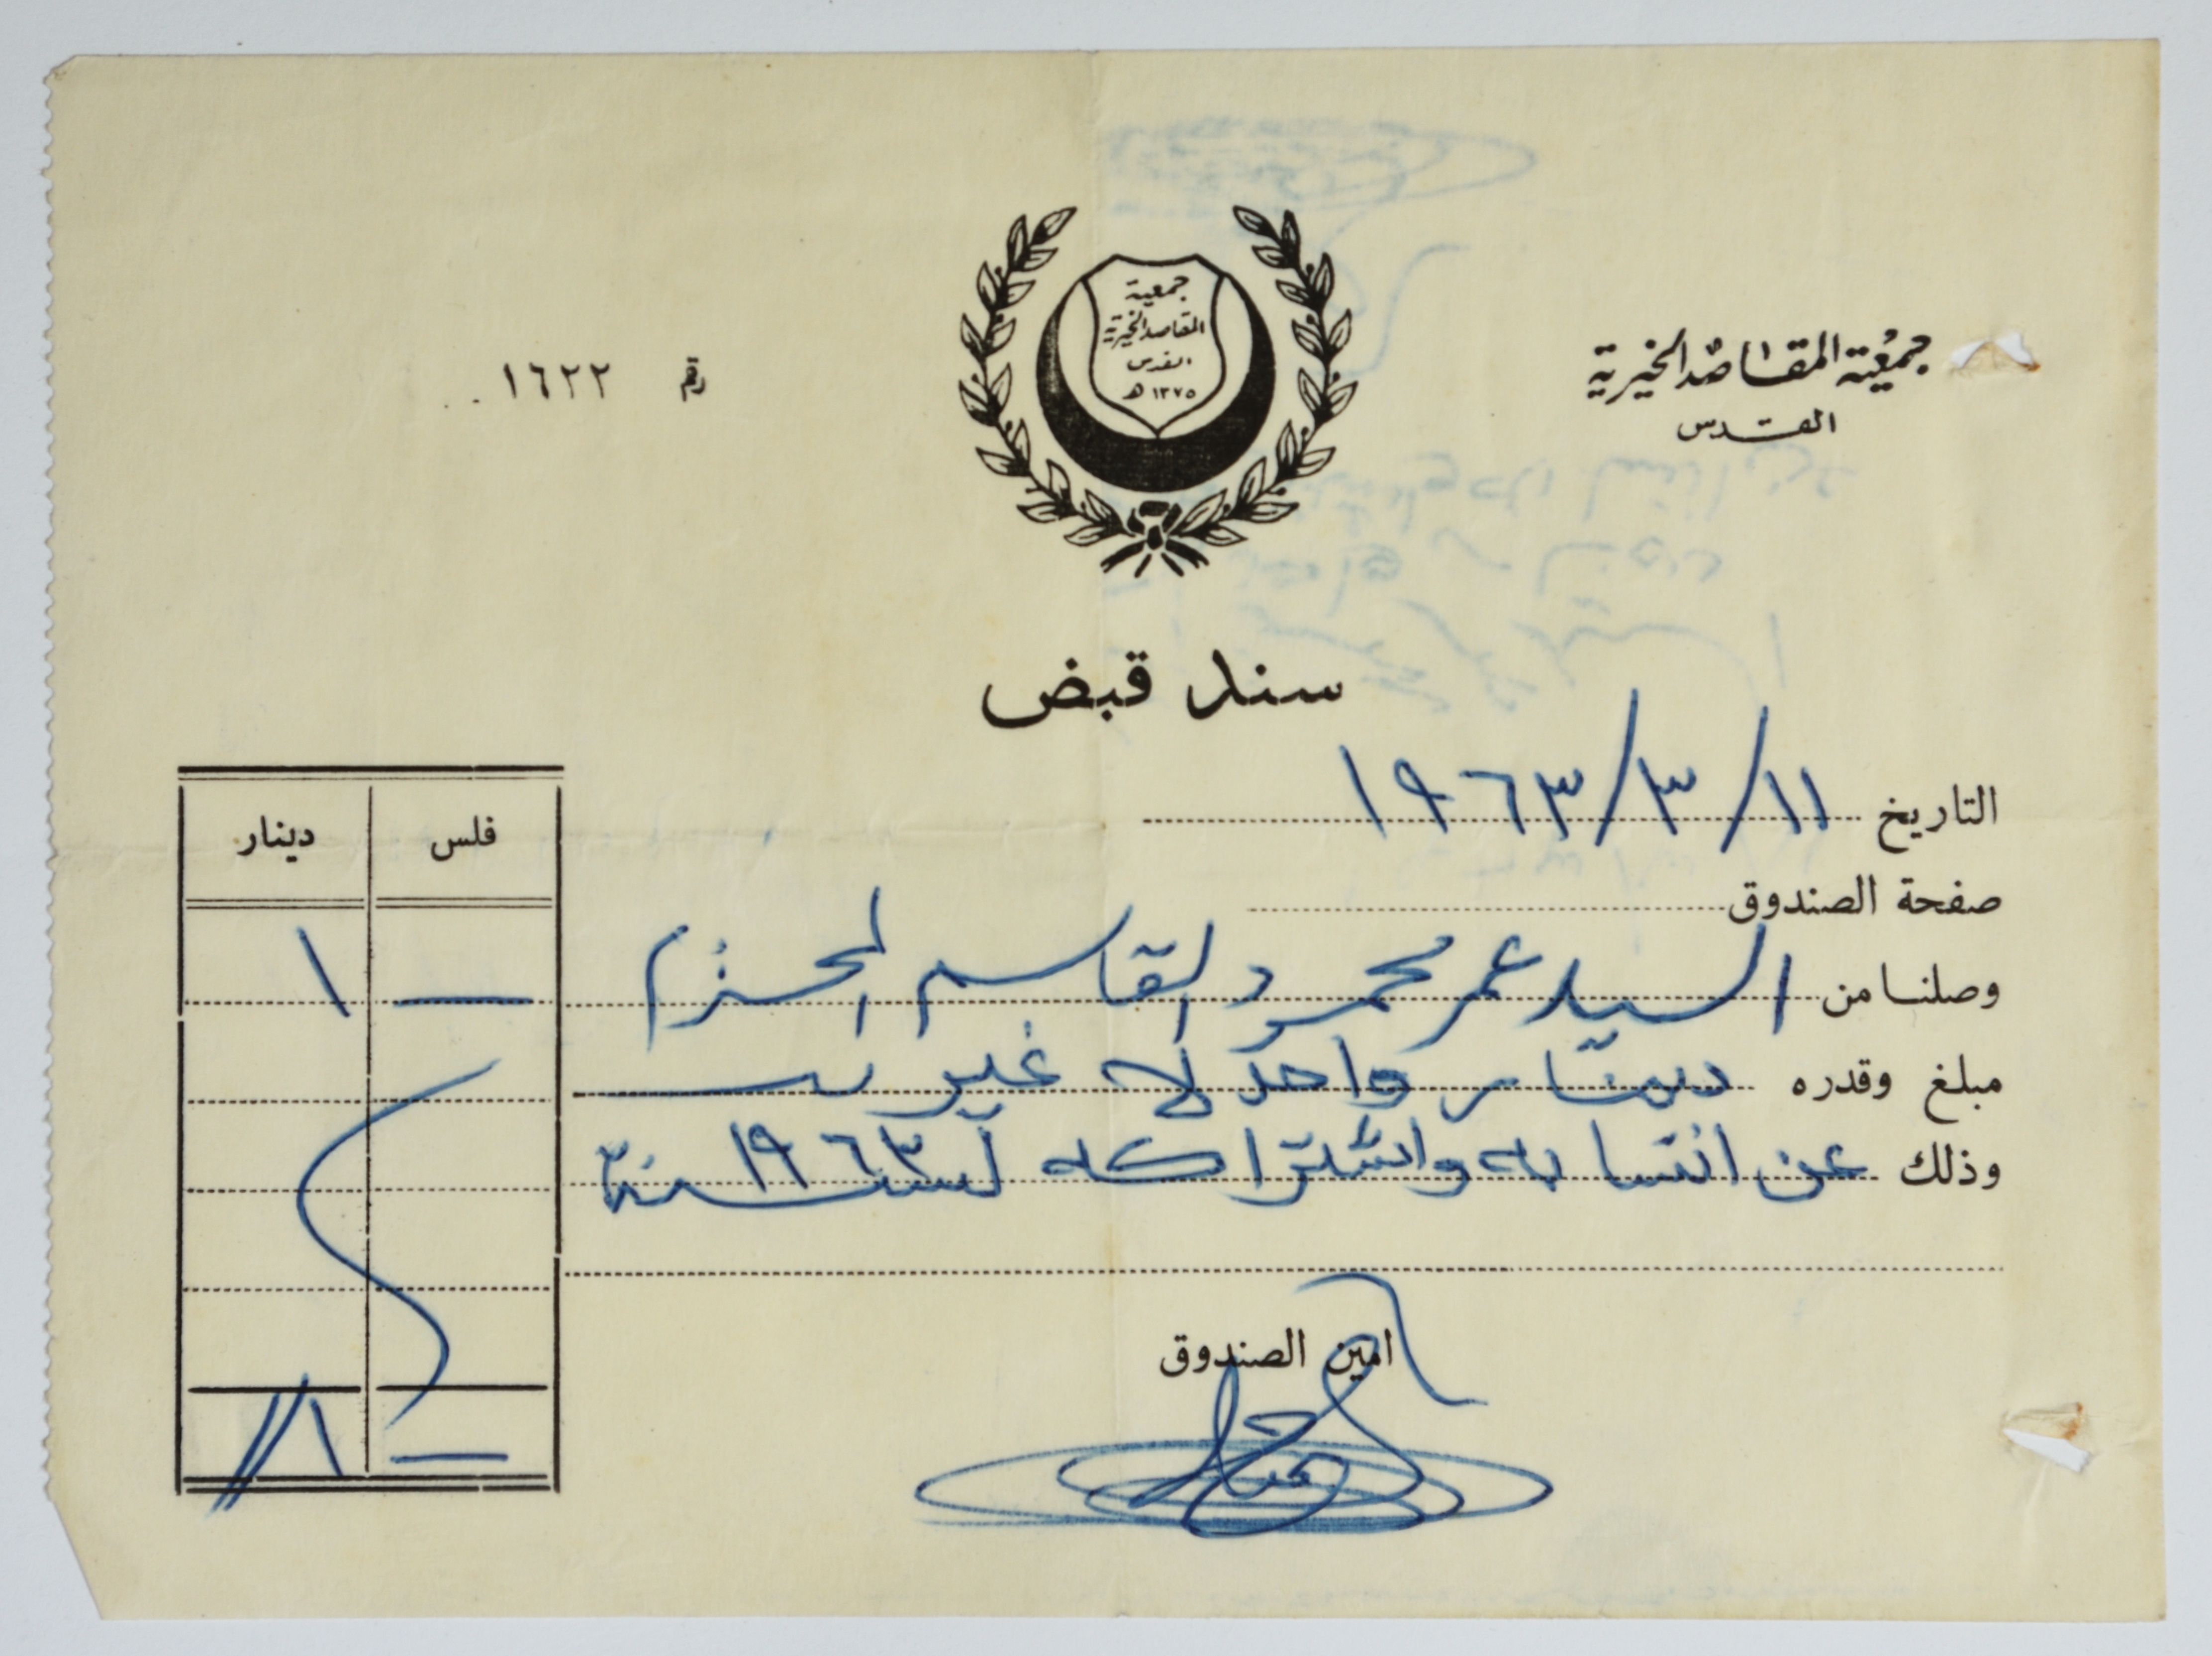 جمعية المقاصد الخيرية
القدس
جمعية
المقاصد الخيرية
القدس
١٣٧٥ هـ
رقم ١٦٢٢
سند قبض
التاريخ ١١/٣/١٩٦٣
صفحة الصندوق
وصلنا من السيد عمر محمود القاسم المحترم
مبلغ وقدره دينار واحد لا غير
وذلك عن انتسابه واشتراكه لسنة ١٩٦٣
فلس دينار
— ١
— ١
امين الصندوق